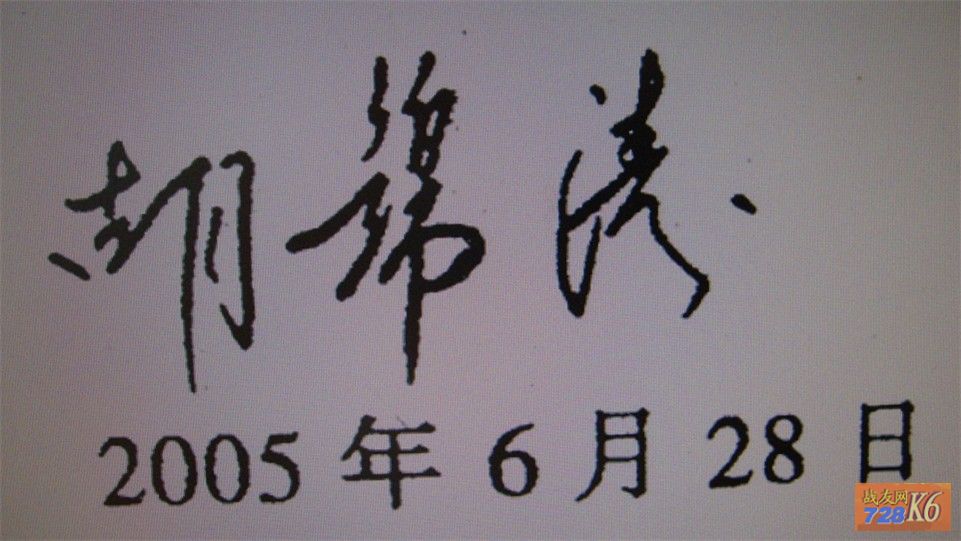 胡锦涛
2005 年 6 月 28 日
战友网
728 K6